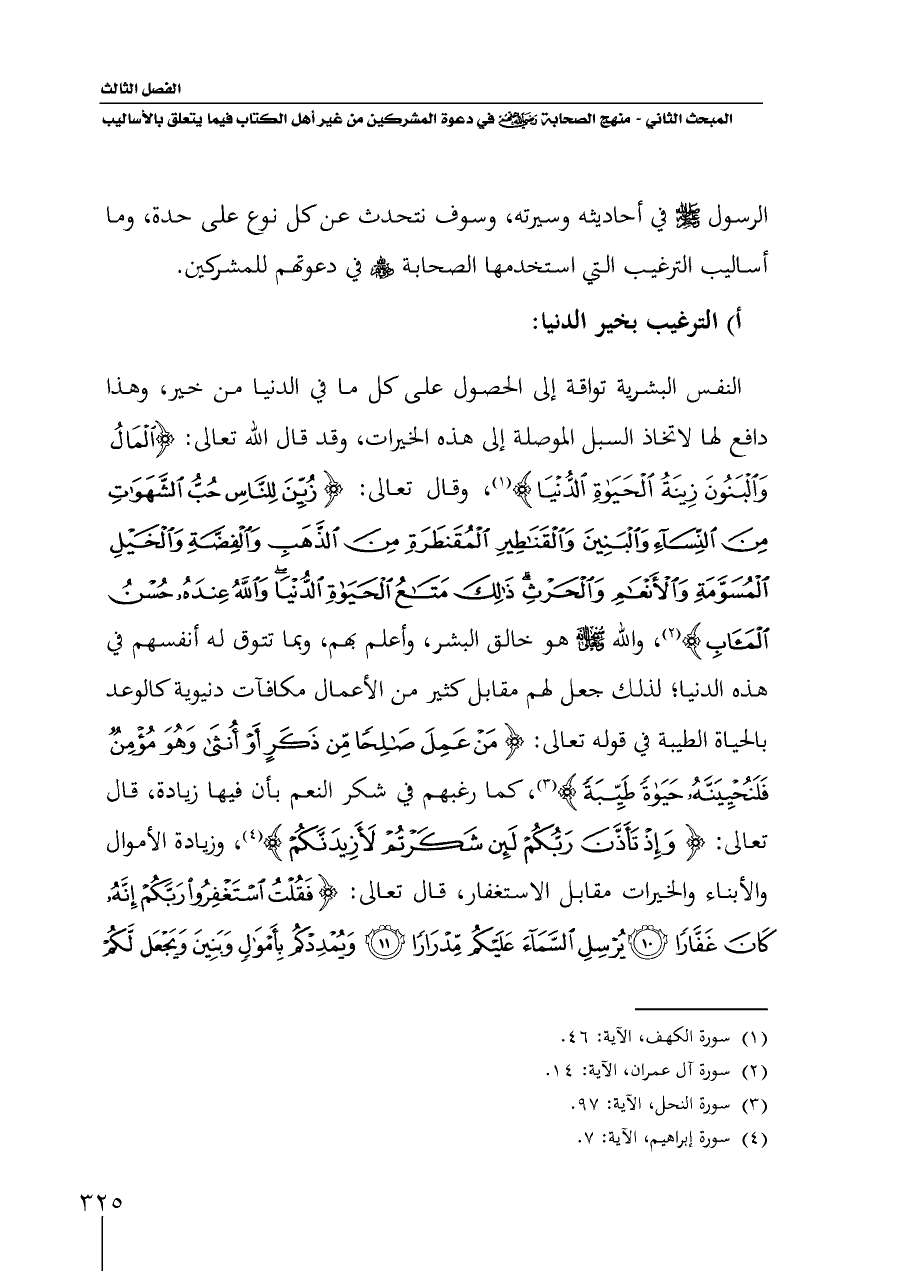 الفصل الثالث
المبحث الثاني - منهج الصحابة رضي الله عنهم في دعوة المشركين من غير أهل الكتاب فيما يتعلق بالأساليب
الرسول ﷺ في أحاديثه وسيرته، وسوف نتحدث عن كل نوع على حدة، وما
أساليب الترغيب التي استخدمها الصحابة ﷺ في دعوتهم للمشركين.
أ) الترغيب بخير الدنيا:
النفس البشرية تواقة إلى الحصول على كل ما في الدنيا من خير، وهذا
دافع لها لاتخاذ السبل الموصلة إلى هذه الخيرات، وقد قال الله تعالى: ﴿ٱلْمَالُ
وَٱلْبَنُونَ زِينَةُ ٱلْحَيَوٰةِ ٱلدُّنْيَا﴾(١)، وقال تعالى: ﴿زُيِّنَ لِلنَّاسِ حُبُّ ٱلشَّهَوَٰتِ
مِنَ ٱلنِّسَآءِ وَٱلْبَنِينَ وَٱلْقَنَٰطِيرِ ٱلْمُقَنطَرَةِ مِنَ ٱلذَّهَبِ وَٱلْفِضَّةِ وَٱلْخَيْلِ
ٱلْمُسَوَّمَةِ وَٱلْأَنْعَٰمِ وَٱلْحَرْثِ ۗ ذَٰلِكَ مَتَٰعُ ٱلْحَيَوٰةِ ٱلدُّنْيَا ۖ وَٱللَّهُ عِندَهُۥ حُسْنُ
ٱلْمَـَٔابِ﴾(٢)، والله ﷻ هو خالق البشر، وأعلم بهم، وبما تتوق له أنفسهم في
هذه الدنيا؛ لذلك جعل لهم مقابل كثير من الأعمال مكافآت دنيوية كالوعد
بالحياة الطيبة في قوله تعالى: ﴿مَنْ عَمِلَ صَٰلِحًا مِّن ذَكَرٍ أَوْ أُنثَىٰ وَهُوَ مُؤْمِنٌ
فَلَنُحْيِيَنَّهُۥ حَيَوٰةً طَيِّبَةً﴾(٣)، كما رغبهم في شكر النعم بأن فيها زيادة، قال
تعالى: ﴿وَإِذْ تَأَذَّنَ رَبُّكُمْ لَئِن شَكَرْتُمْ لَأَزِيدَنَّكُمْ﴾(٤)، وزيادة الأموال
والأبناء والخيرات مقابل الاستغفار، قال تعالى: ﴿فَقُلْتُ ٱسْتَغْفِرُوا۟ رَبَّكُمْ إِنَّهُۥ
كَانَ غَفَّارًا ١٠ يُرْسِلِ ٱلسَّمَآءَ عَلَيْكُم مِّدْرَارًا ١١ وَيُمْدِدْكُم بِأَمْوَٰلٍ وَبَنِينَ وَيَجْعَل لَّكُمْ
(١) سورة الكهف، الآية: ٤٦.
(٢) سورة آل عمران، الآية: ١٤.
(٣) سورة النحل، الآية: ٩٧.
(٤) سورة إبراهيم، الآية: ٧.
٣٢٥